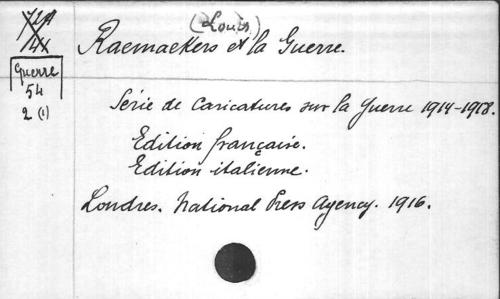 72A
41
(Louis)
Raemaekers et la Guerre.
Guerre
54
2 (1)
Série de caricatures sur la Guerre 1914-1918.
Edition française.
Edition italienne.
Londres. National Press Agency. 1916.